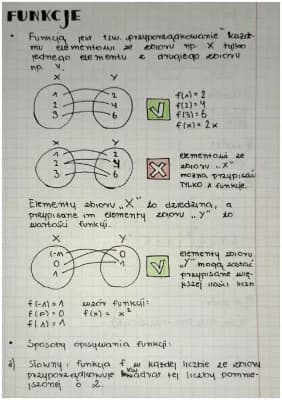 FUNKCJE
• Funkcją jest tzw. „przyporządkowanie" każde-
mu elementowi ze zbioru np. X tylko
jednego elementu z drugiego zbioru
np. Y.
X Y
1 2
2 4
3 6
f(1) = 2
f(2) = 4
f(3) = 6
f(x) = 2x
X Y
1 2
2 4
3 6
elementowi ze
zbioru „X"
można przypisać
TYLKO 1 funkcję.
Elementy zbioru „X" to dziedzina, a
przypisane im elementy zbioru „Y" to
wartości funkcji.
X Y
(-1) 0
0 1
1
elementy zbioru
„Y" mogą zostać
przypisane wię-
kszej ilości liczb
f(-1) = 1 wzór funkcji:
f(0) = 0 f(x) = x²
f(1) = 1
• Sposoby opisywania funkcji:
Słowny: funkcja f w każdej liczbie ze zbioru
przyporządkowuje kwadrat tej liczby pomnie-
jszonej o 2.